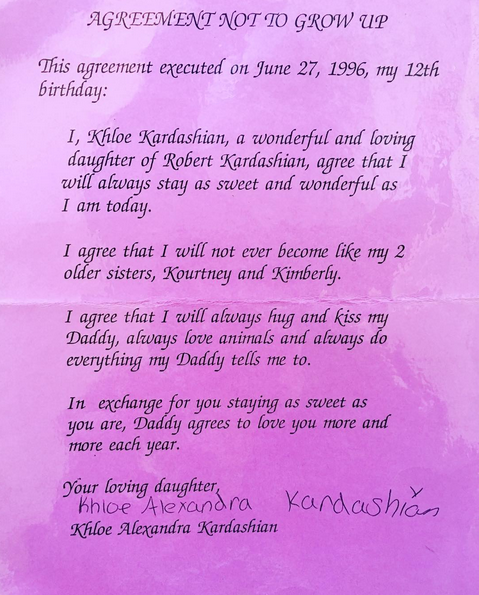 AGREEMENT NOT TO GROW UP
This agreement executed on June 27, 1996, my 12th
birthday:
I, Khloe Kardashian, a wonderful and loving
daughter of Robert Kardashian, agree that I
will always stay as sweet and wonderful as
I am today.
I agree that I will not ever become like my 2
older sisters, Kourtney and Kimberly.
I agree that I will always hug and kiss my
Daddy, always love animals and always do
everything my Daddy tells me to.
In exchange for you staying as sweet as
you are, Daddy agrees to love you more and
more each year.
Your loving daughter,
Khloe Alexandra Kardashian
Khloe Alexandra Kardashian